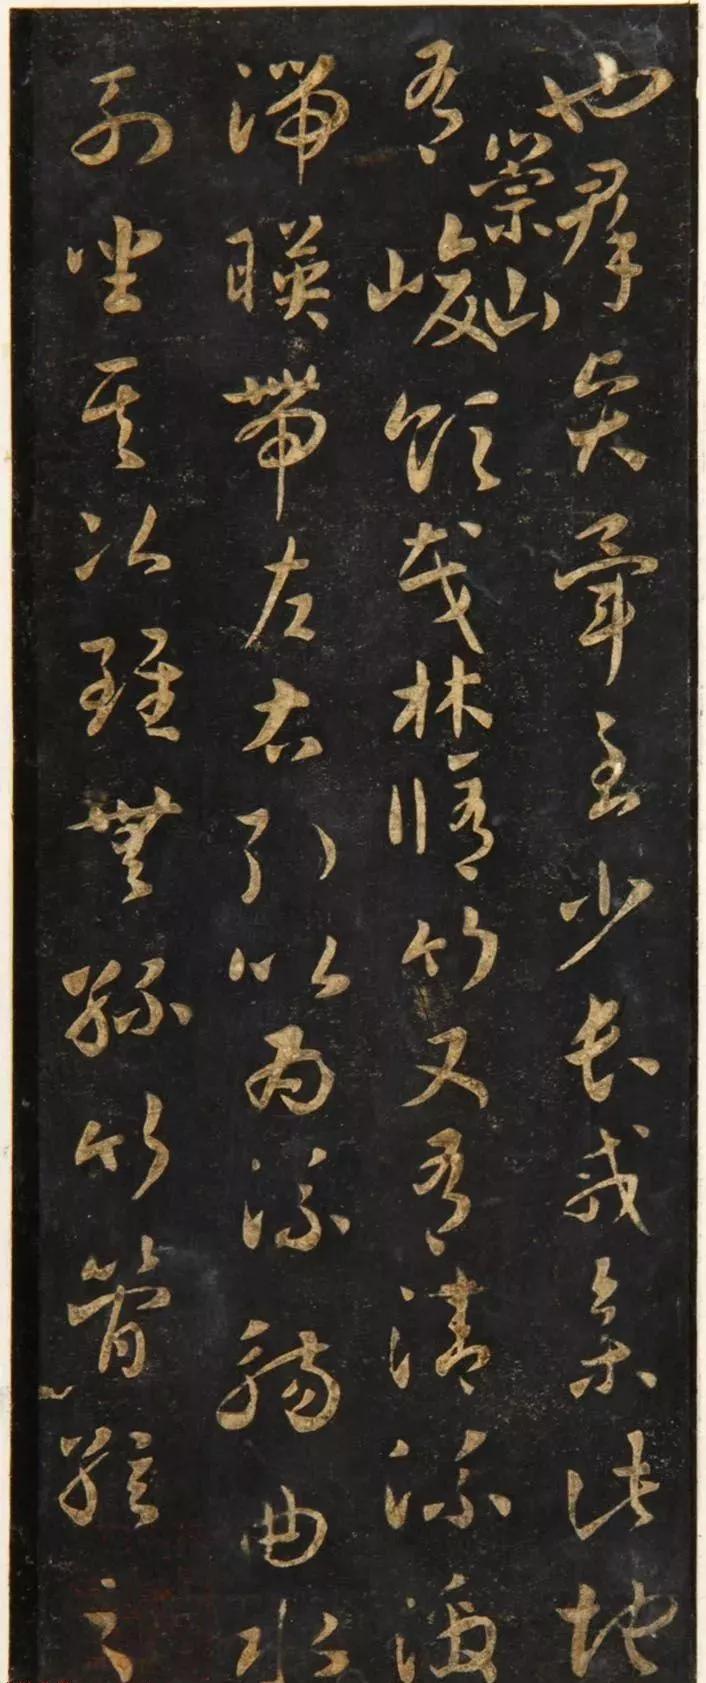 也羣賢畢至少長咸集此地
有崇山峻領茂林脩竹又有清流激
湍暎帶左右引以爲流觴曲水
列坐其次雖無絲竹管弦之